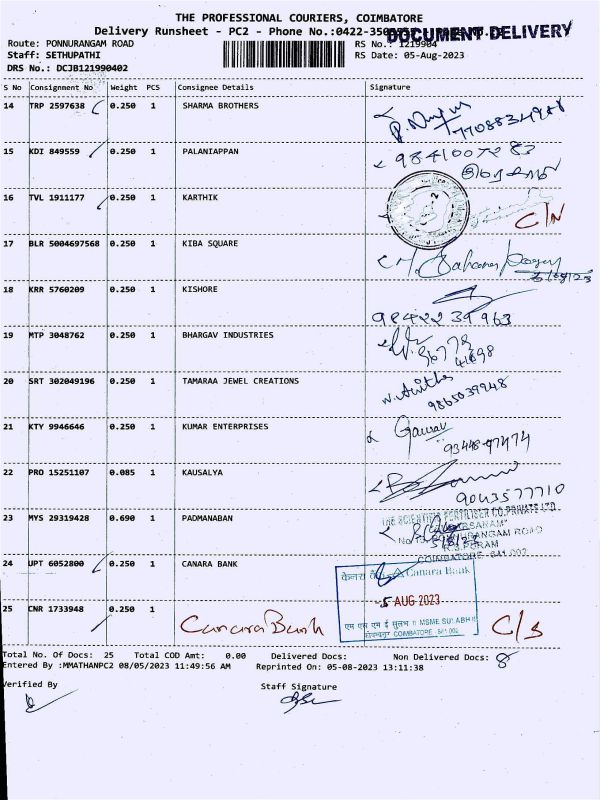 THE PROFESSIONAL COURIERS, COIMBATORE
Delivery Runsheet - PC2 - Phone No.:0422-
DOCUMENT DELIVERY
Route: PONNURANGAM ROAD
RS No.: 1219904
Staff: SETHUPATHI
RS Date: 05-Aug-2023
DRS No.: DCJB121990402
S No Consignment No Weight PCS Consignee Details Signature
14 TRP 2597638 0.250 1 SHARMA BROTHERS
7708834988
15 KDI 849559 0.250 1 PALANIAPPAN
9841007283
16 TVL 1911177 0.250 1 KARTHIK
C/N
17 BLR 5004697568 0.250 1 KIBA SQUARE
18 KRR 5760209 0.250 1 KISHORE
98422 39963
19 MTP 3048762 0.250 1 BHARGAV INDUSTRIES
20 SRT 302049196 0.250 1 TAMARAA JEWEL CREATIONS
9865039948
21 KTY 9946646 0.250 1 KUMAR ENTERPRISES
Gaurav
93448-97474
22 PRO 15251107 0.085 1 KAUSALYA
9043577710
23 MYS 29319428 0.690 1 PADMANABAN
THE SCIENTIFIC FERTILISER CO. PRIVATE LTD
R.S. PURAM
COIMBATORE - 641 002
24 UPT 6052800 0.250 1 CANARA BANK
Canara Bank
-5 AUG 2023
25 CNR 1733948 0.250 1
Canara Bank
COIMBATORE - 641 002
C/S
Total No. Of Docs: 25 Total COD Amt: 0.00 Delivered Docs: Non Delivered Docs: 8
Entered By :MMATHANPC2 08/05/2023 11:49:56 AM Reprinted On: 05-08-2023 13:11:38
Verified By
Staff Signature